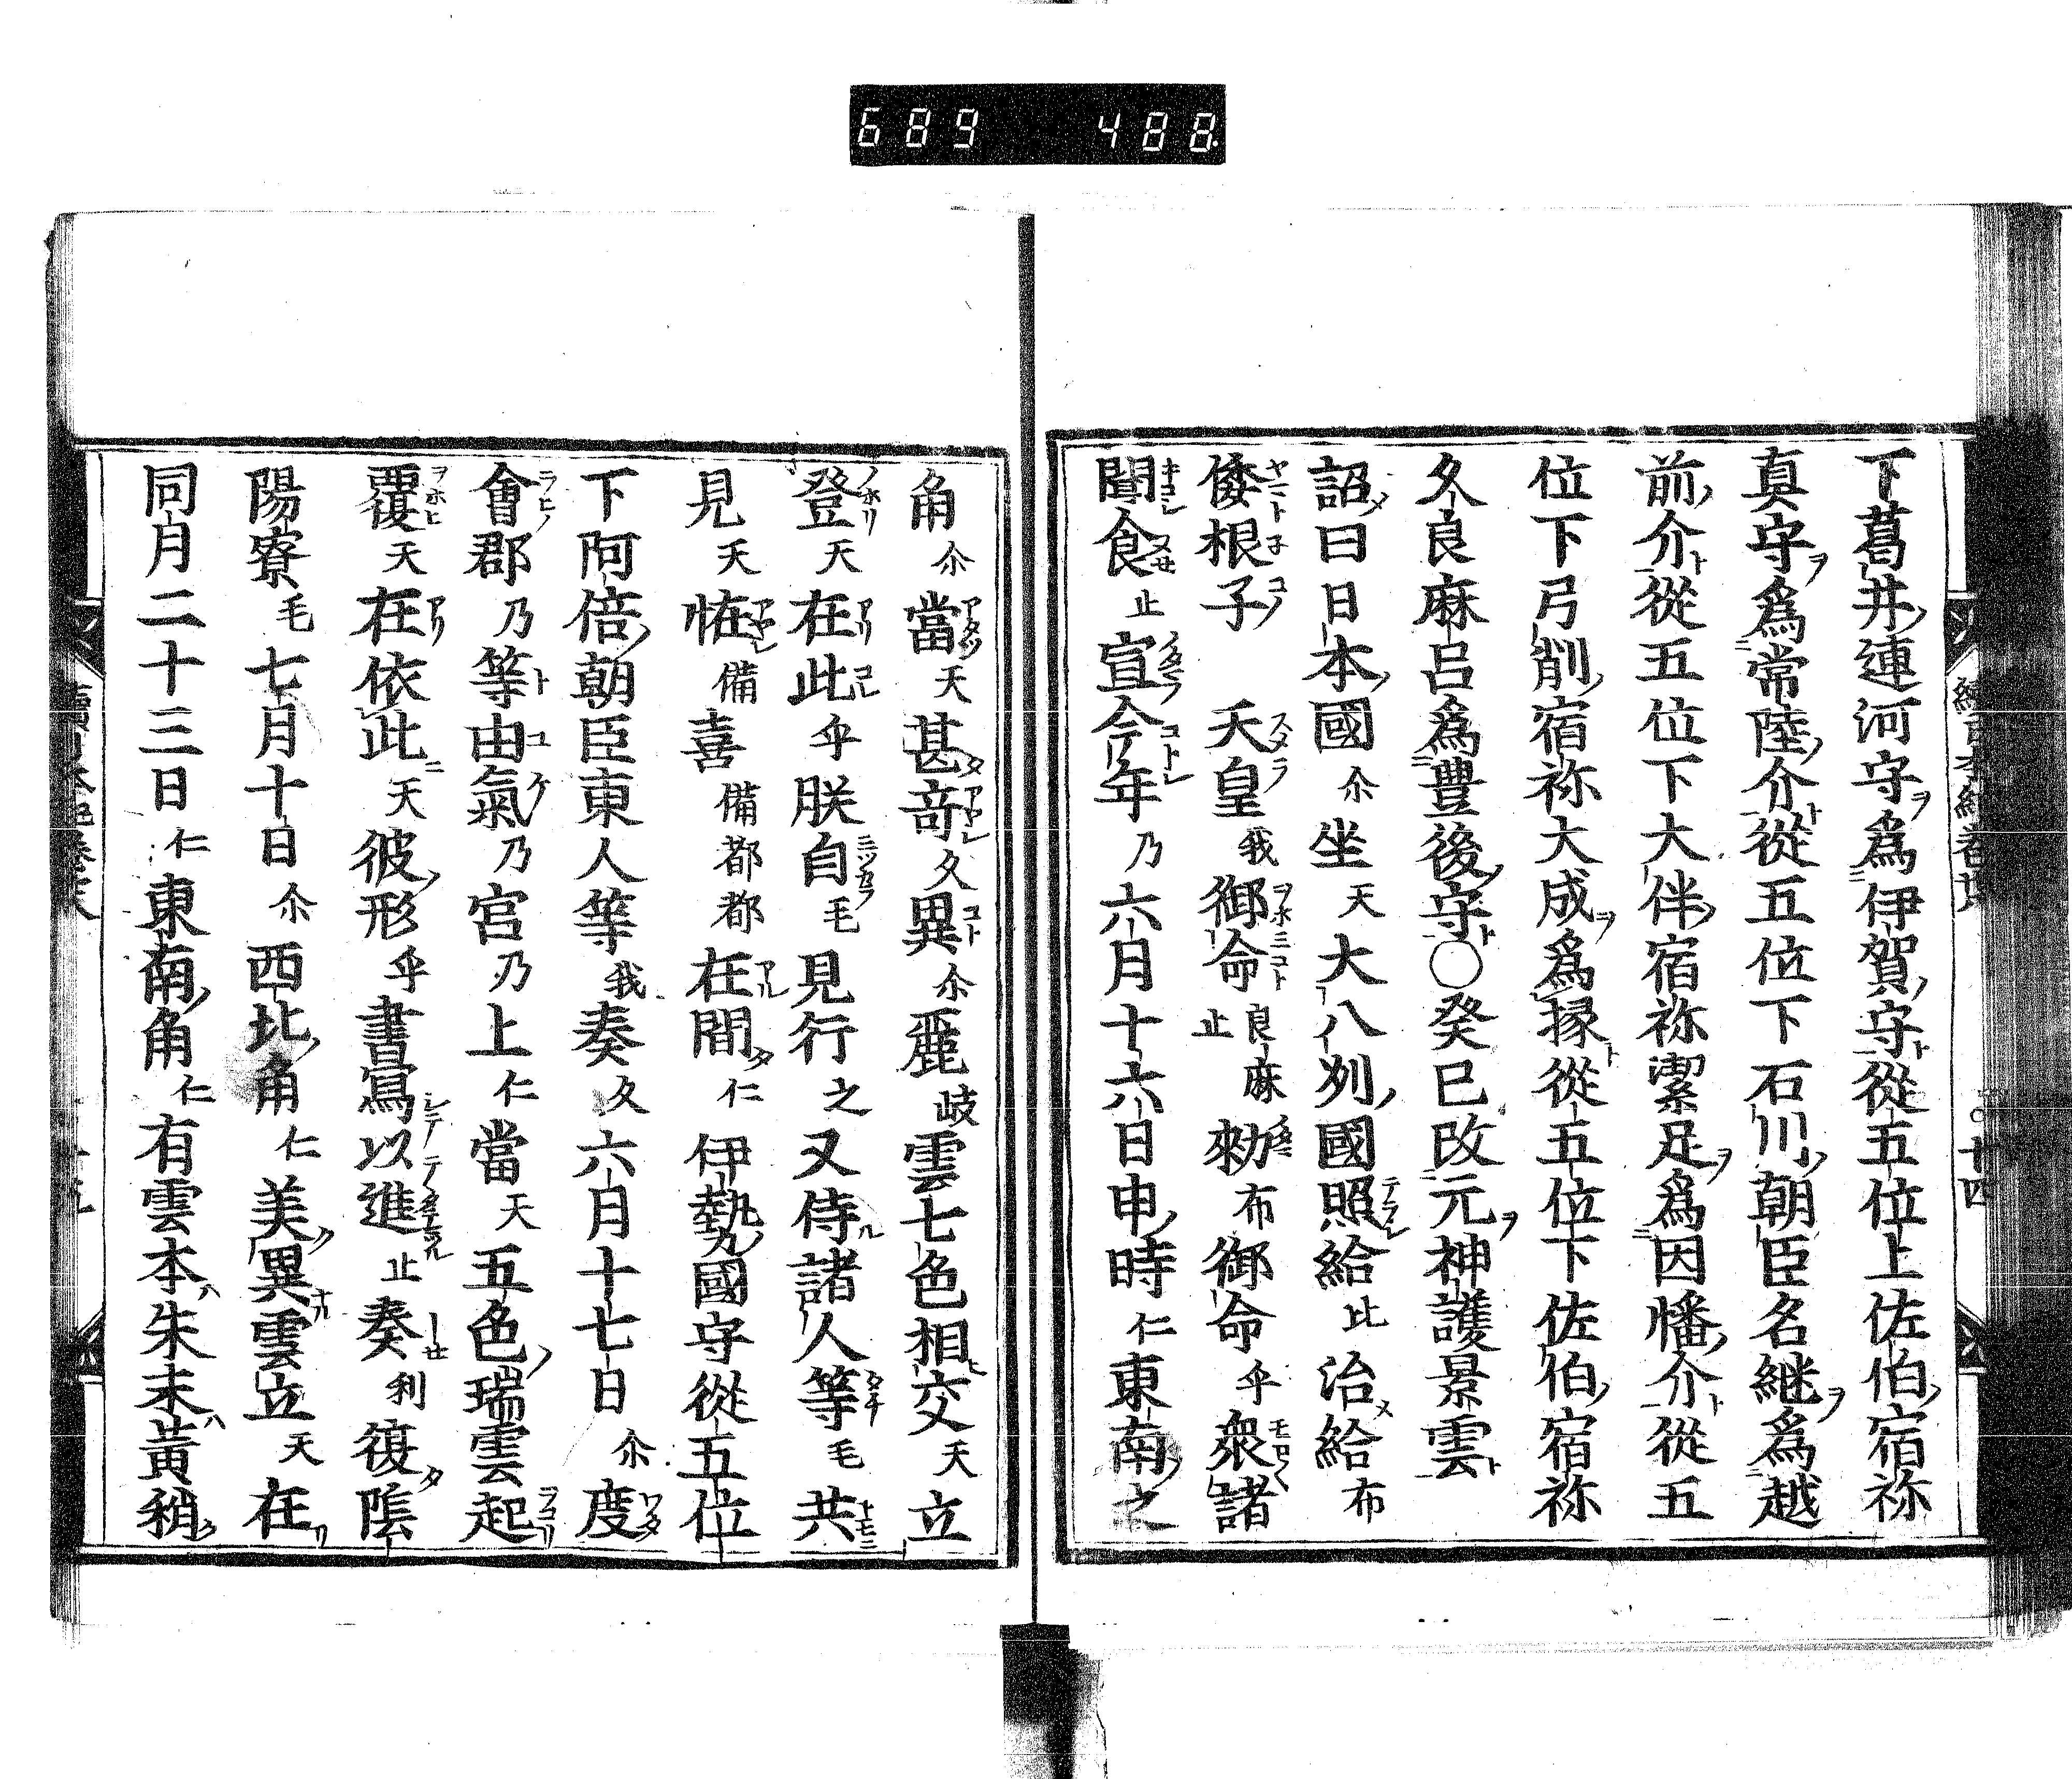 689 488
下葛井連河守爲伊賀守從五位上佐伯宿祢
真守爲常陸介從五位下石川朝臣名継爲越
前介從五位下大伴宿祢潔足爲因幡介從五
位下弓削宿祢大成爲掾從五位下佐伯宿祢
久良麻呂爲豊後守○癸巳改元神護景雲
詔曰日本國尒坐天大八列國照給比治給布
倭根子天皇我御命良麻止勑布御命乎衆諸
聞食止宣今年乃六月十六日申時仁東南之
角尒當天甚竒久異尒麗岐雲七色相交天立
登天在此乎朕自毛見行之又侍諸人等毛共
見天恠備喜備都都在間仁伊勢國守從五位
下阿倍朝臣東人等我奏久六月十七日尒度
會郡乃等由氣乃宮乃上仁當天五色瑞雲起
覆天在依此天彼形乎書寫以進止奏利復陰
陽寮毛七月十日尒西北角仁美異雲立天在
同月二十三日仁東南角仁有雲本朱末黄稍